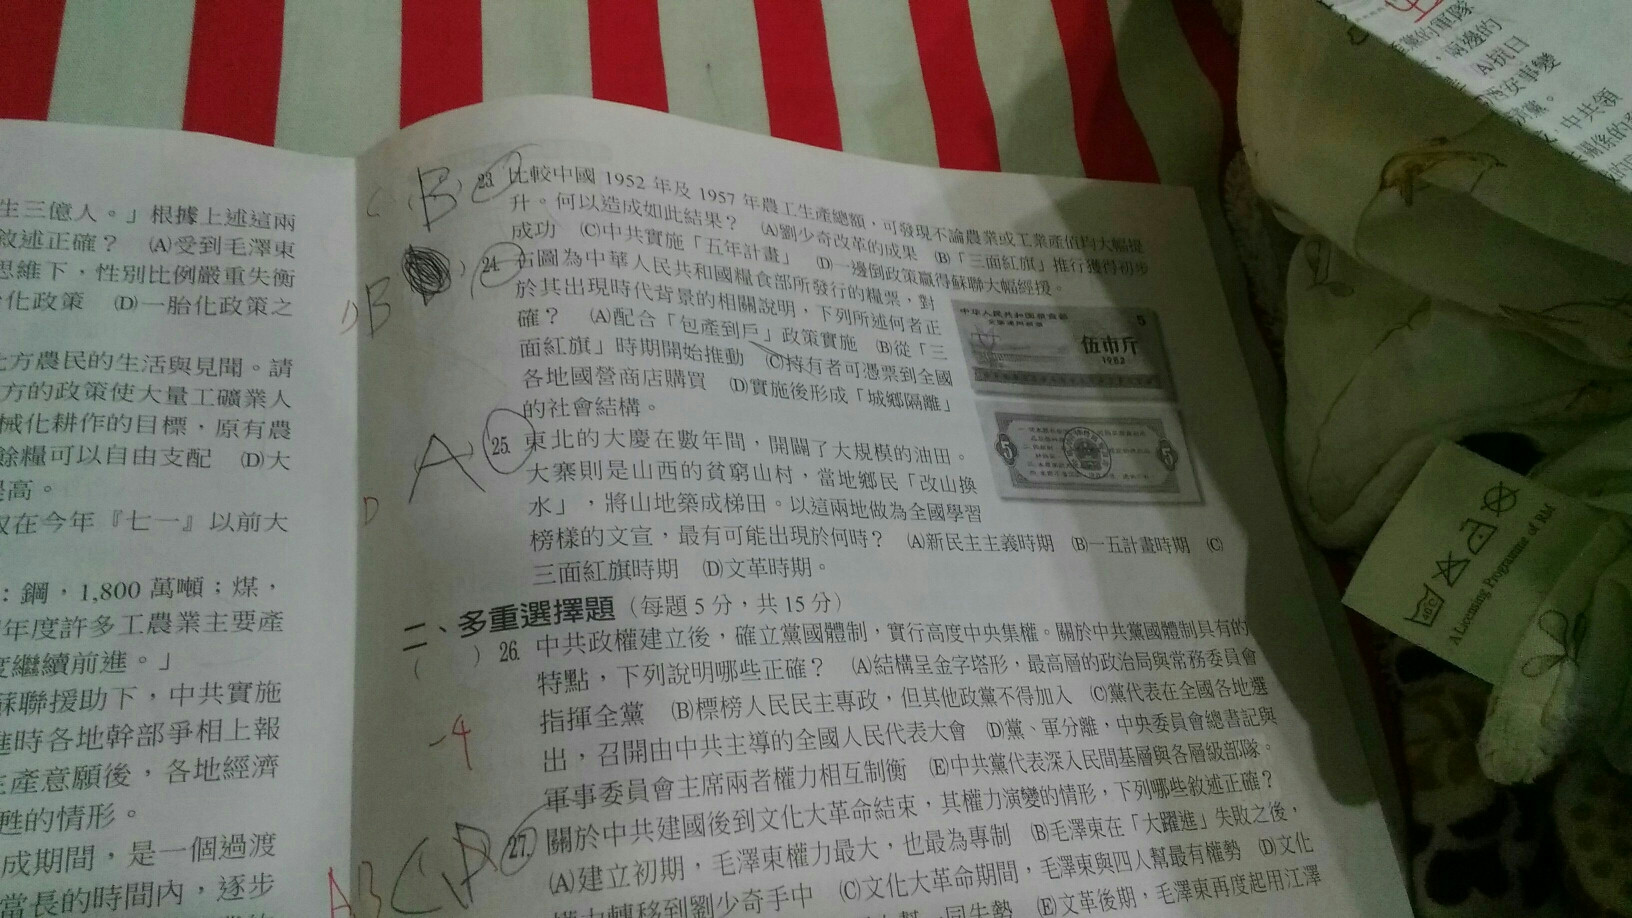 生三億人。」根據上述這兩
敘述正確？ (A)受到毛澤東
思維下，性別比例嚴重失衡
化政策 (D)一胎化政策之
方農民的生活與見聞。請
方的政策使大量工礦業人
械化耕作的目標，原有農
餘糧可以自由支配 (D)大
提高。
在今年『七一』以前大
：鋼，1,800 萬噸；煤，
年度許多工農業主要產
度繼續前進。」
蘇聯援助下，中共實施
進時各地幹部爭相上報
生產意願後，各地經濟
甦的情形。
成期間，是一個過渡
當長的時間內，逐步
C B 23. 比較中國 1952 年及 1957 年農工生產總額，可發現不論農業或工業產值均大幅提
升。何以造成如此結果？ (A)劉少奇改革的成果 (B)「三面紅旗」推行獲得初步
成功 (C)中共實施「五年計畫」 (D)一邊倒政策贏得蘇聯大幅經援。
D B 24. 右圖為中華人民共和國糧食部所發行的糧票，對
於其出現時代背景的相關說明，下列所述何者正
確？ (A)配合「包產到戶」政策實施 (B)從「三
面紅旗」時期開始推動 (C)持有者可憑票到全國
各地國營商店購買 (D)實施後形成「城鄉隔離」
的社會結構。
中华人民共和国粮食部
5
伍市斤
1982
5
5
D A 25. 東北的大慶在數年間，開闢了大規模的油田。
大寨則是山西的貧窮山村，當地鄉民「改山換
水」，將山地築成梯田。以這兩地做為全國學習
榜樣的文宣，最有可能出現於何時？ (A)新民主主義時期 (B)一五計畫時期 (C)
三面紅旗時期 (D)文革時期。
二、多重選擇題（每題 5 分，共 15 分）
( ) 26. 中共政權建立後，確立黨國體制，實行高度中央集權。關於中共黨國體制具有的
特點，下列說明哪些正確？ (A)結構呈金字塔形，最高層的政治局與常務委員會
指揮全黨 (B)標榜人民民主專政，但其他政黨不得加入 (C)黨代表在全國各地選
出，召開由中共主導的全國人民代表大會 (D)黨、軍分離，中央委員會總書記與
軍事委員會主席兩者權力相互制衡 (E)中共黨代表深入民間基層與各層級部隊。
-4
27. 關於中共建國後到文化大革命結束，其權力演變的情形，下列哪些敘述正確？
(A)建立初期，毛澤東權力最大，也最為專制 (B)毛澤東在「大躍進」失敗之後，
權力轉移到劉少奇手中 (C)文化大革命期間，毛澤東與四人幫最有權勢 (D)文化
(E)文革後期，毛澤東再度起用江澤
的軍隊
兩邊的
(A)抗日
西安事變
中共領
關係的
A Licensing Programme of RM